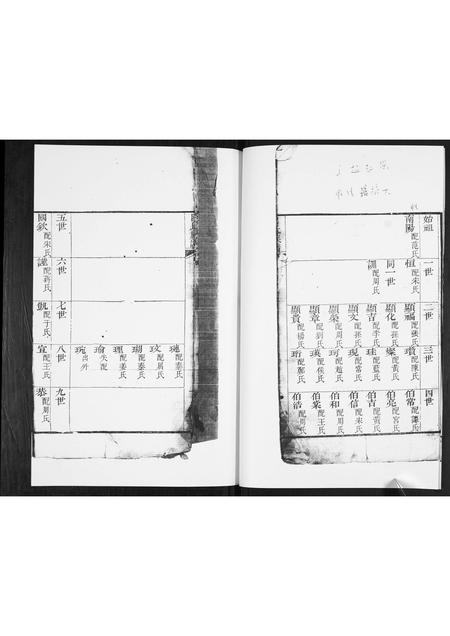 始祖
南陽配范氏
一世
恒配朱氏
同一世
訓配周氏
二世
顯福配張氏
顯化配孫氏
顯吉配李氏
顯文配孫氏
顯榮配周氏
顯章配劉氏
顯貴配楊氏
三世
瓚配陳氏
燦配黃氏
珪配藍氏
現配常氏
珂配趙氏
瑛配侯氏
珩配鄭氏
四世
伯常配譚氏
伯亮配宮氏
伯吉配黃氏
伯信配朱氏
伯和配周氏
伯棠配王氏
伯浩配周氏
五世
國欽配宋氏
六世
謹配蔣氏
七世
凱配于氏
八世
璉配秦氏
玟配周氏
瑚配秦氏
理配姜氏
瑜失配
琬出外
宣配王氏
九世
恭配周氏